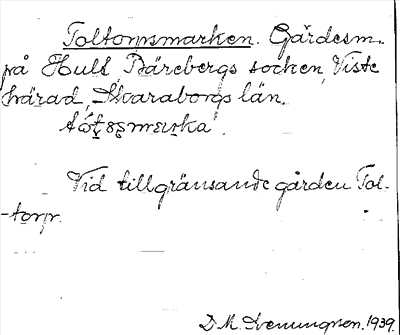 Toltorpsmarken. Gärdesm.
på Hult, Bärebergs socken, Viste
härad, Skaraborgs län.

Vid tillgränsande gården Tol-
torp.
D. M. Svenungsson. 1939.